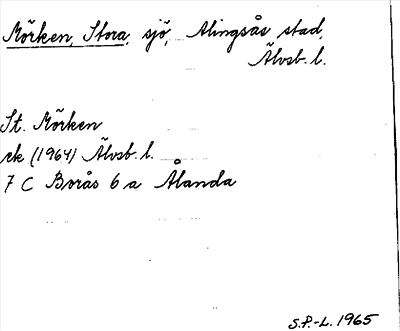 Mörken, Stora, sjö, Alingsås stad,
Älvsb. l.
St. Mörken
ek (1964) Älvsb. l.
7 C Borås 6 a Ålanda
S.P.-L. 1965